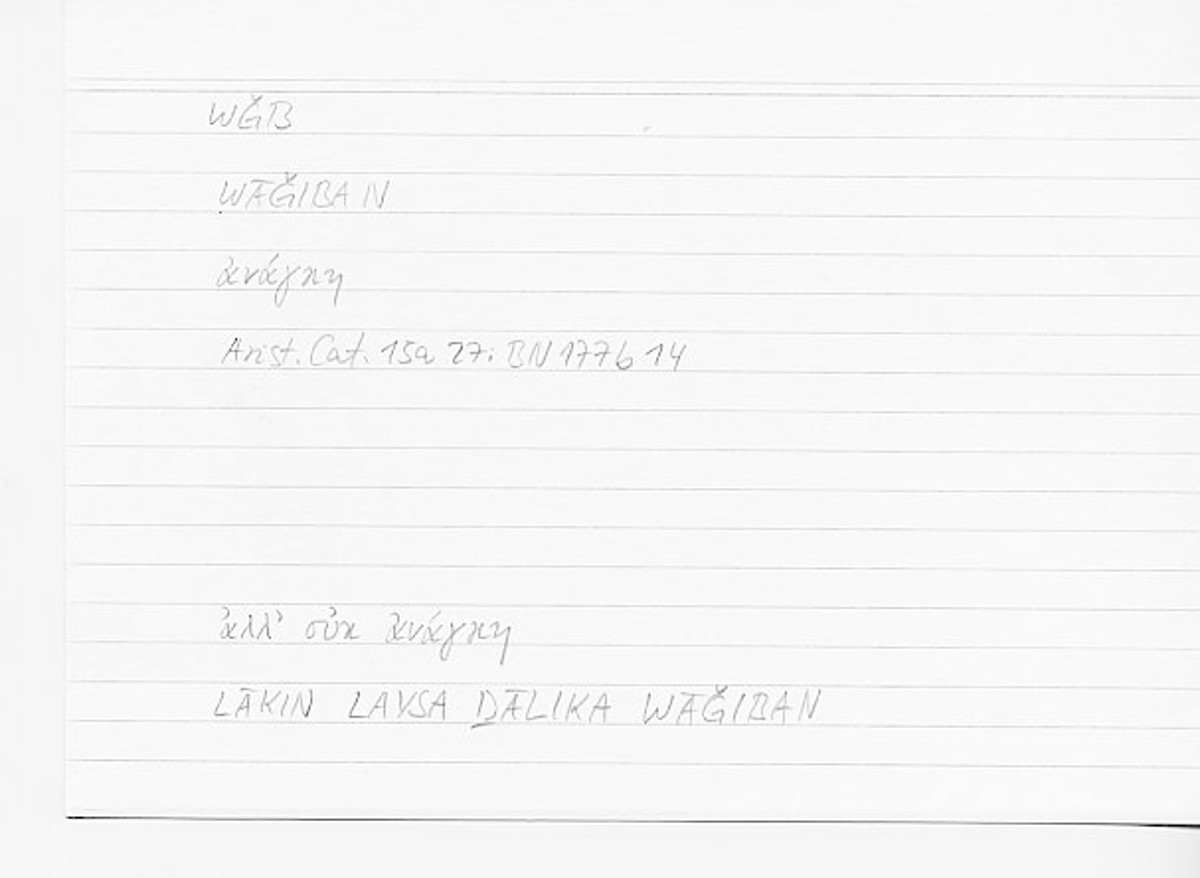 WǦB
WĀǦIBAN
ἀνάγκη
Arist. Cat. 15a 27: BN 177b 14
ἀλλ' οὐκ ἀνάγκη
LĀKIN LAYSA ḎĀLIKA WĀǦIBAN